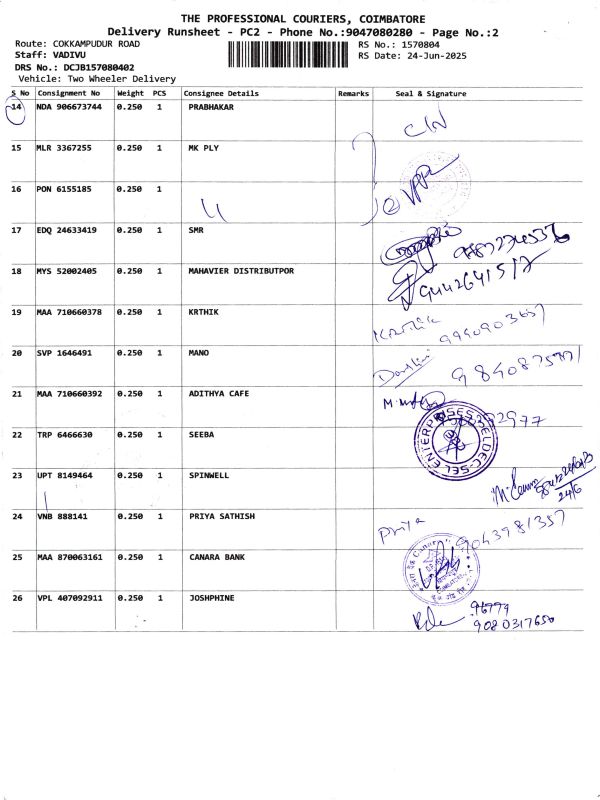 THE PROFESSIONAL COURIERS, COIMBATORE
Delivery Runsheet - PC2 - Phone No.:9047080280 - Page No.:2
Route: COKKAMPUDUR ROAD RS No.: 1570804
Staff: VADIVU RS Date: 24-Jun-2025
DRS No.: DCJB157080402
Vehicle: Two Wheeler Delivery
S No Consignment No Weight PCS Consignee Details Remarks Seal & Signature
14 NDA 906673744 0.250 1 PRABHAKAR
15 MLR 3367255 0.250 1 MK PLY
16 PON 6155185 0.250 1
17 EDQ 24633419 0.250 1 SMR
18 MYS 52002405 0.250 1 MAHAVIER DISTRIBUTPOR
9442641512
19 MAA 710660378 0.250 1 KRTHIK
Karthik
20 SVP 1646491 0.250 1 MANO
21 MAA 710660392 0.250 1 ADITHYA CAFE
22 TRP 6466630 0.250 1 SEEBA
SEL ENTERPRISES
23 UPT 8149464 0.250 1 SPINWELL
24/6
24 VNB 888141 0.250 1 PRIYA SATHISH
Priya 9043981357
25 MAA 870063161 0.250 1 CANARA BANK
26 VPL 407092911 0.250 1 JOSHPHINE
96779
9080317650